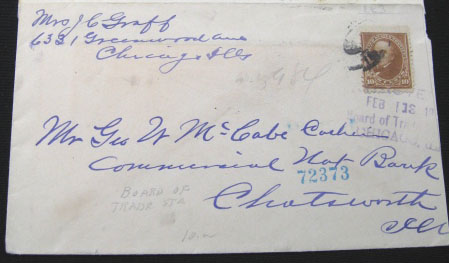 Mrs J C Graff
6331 Greenwood ave
Chicago Ills
10 10
FEB 13
Board of Trade
CHICAGO, ILL
Mr Geo W McCabe Cashier
Commercial Nat Bank
72373
Chatsworth
Ill
BOARD OF
TRADE STA
10.00